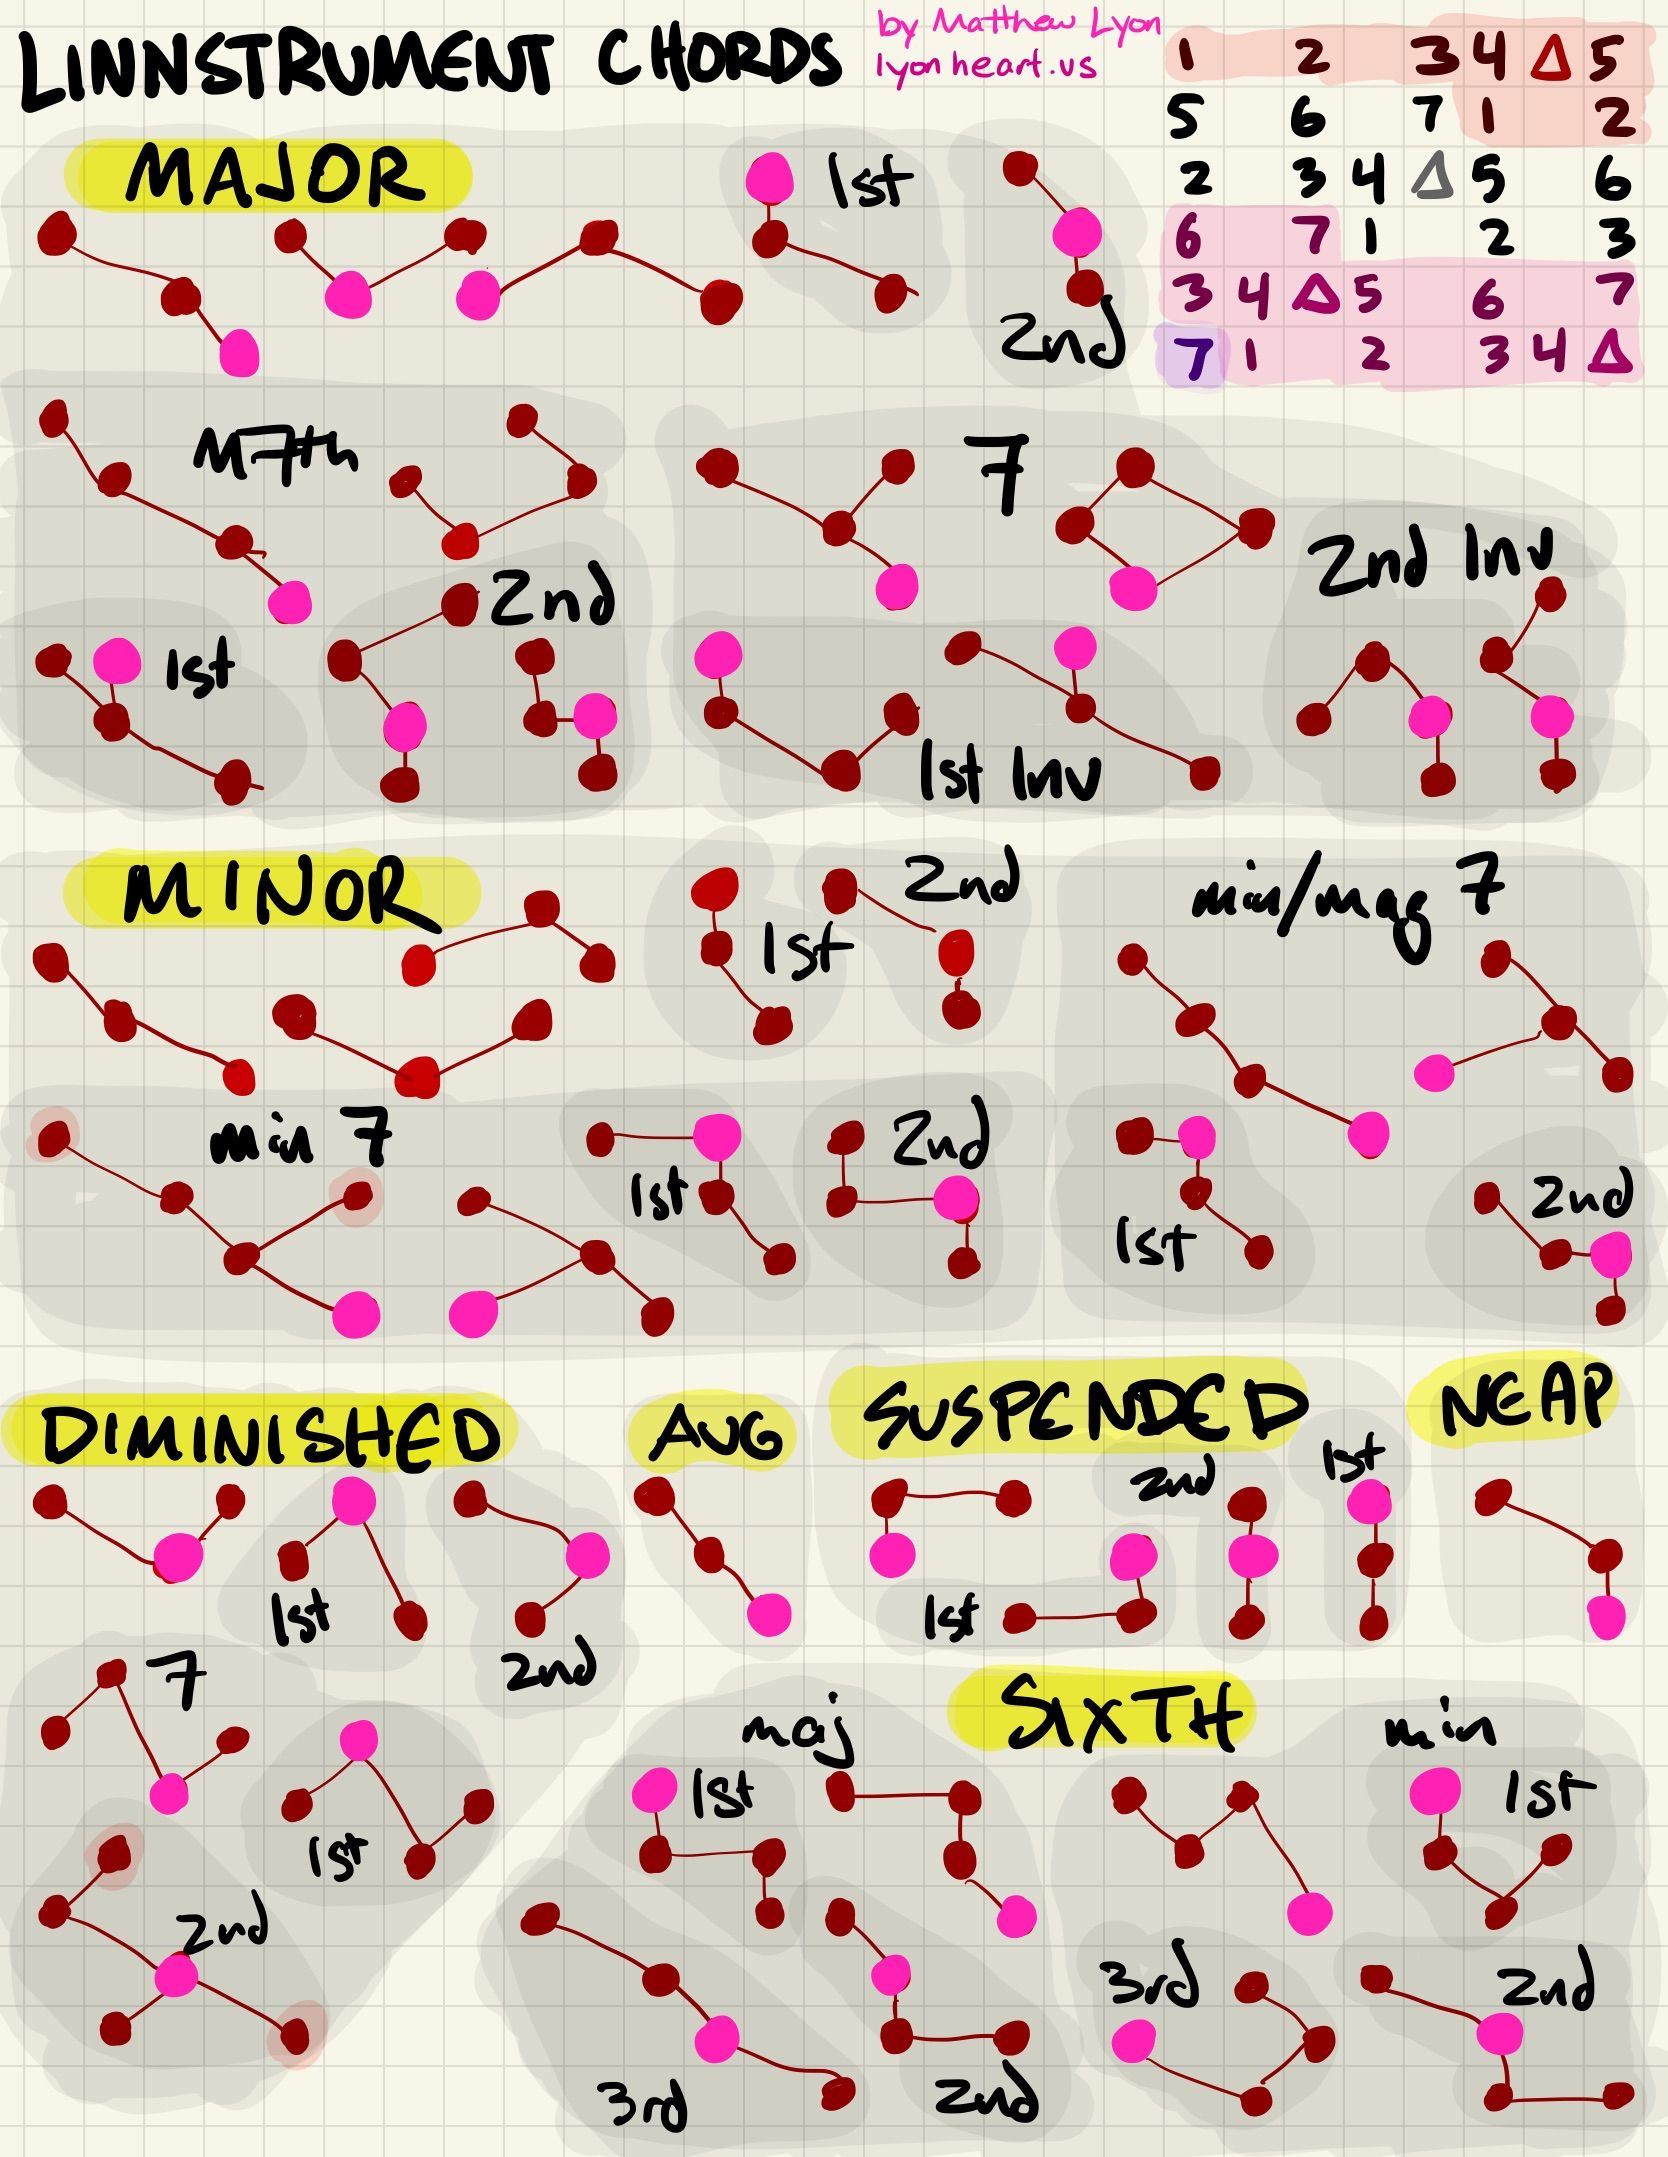 LINNSTRUMENT CHORDS
by Matthew Lyon
lyonheart.us
1 2 3 4 Δ 5
5 6 7 1 2
2 3 4 Δ 5 6
6 7 1 2 3
3 4 Δ 5 6 7
7 1 2 3 4 Δ
MAJOR
1st
2nd
M7th
1st
2nd
7
1st Inv
2nd Inv
MINOR
1st
2nd
min/maj 7
1st
2nd
min 7
1st
2nd
DIMINISHED
1st
2nd
7
1st
2nd
AUG
SUSPENDED
1st
2nd
1st
NEAP
SIXTH
maj
1st
3rd
2nd
min
1st
3rd
2nd